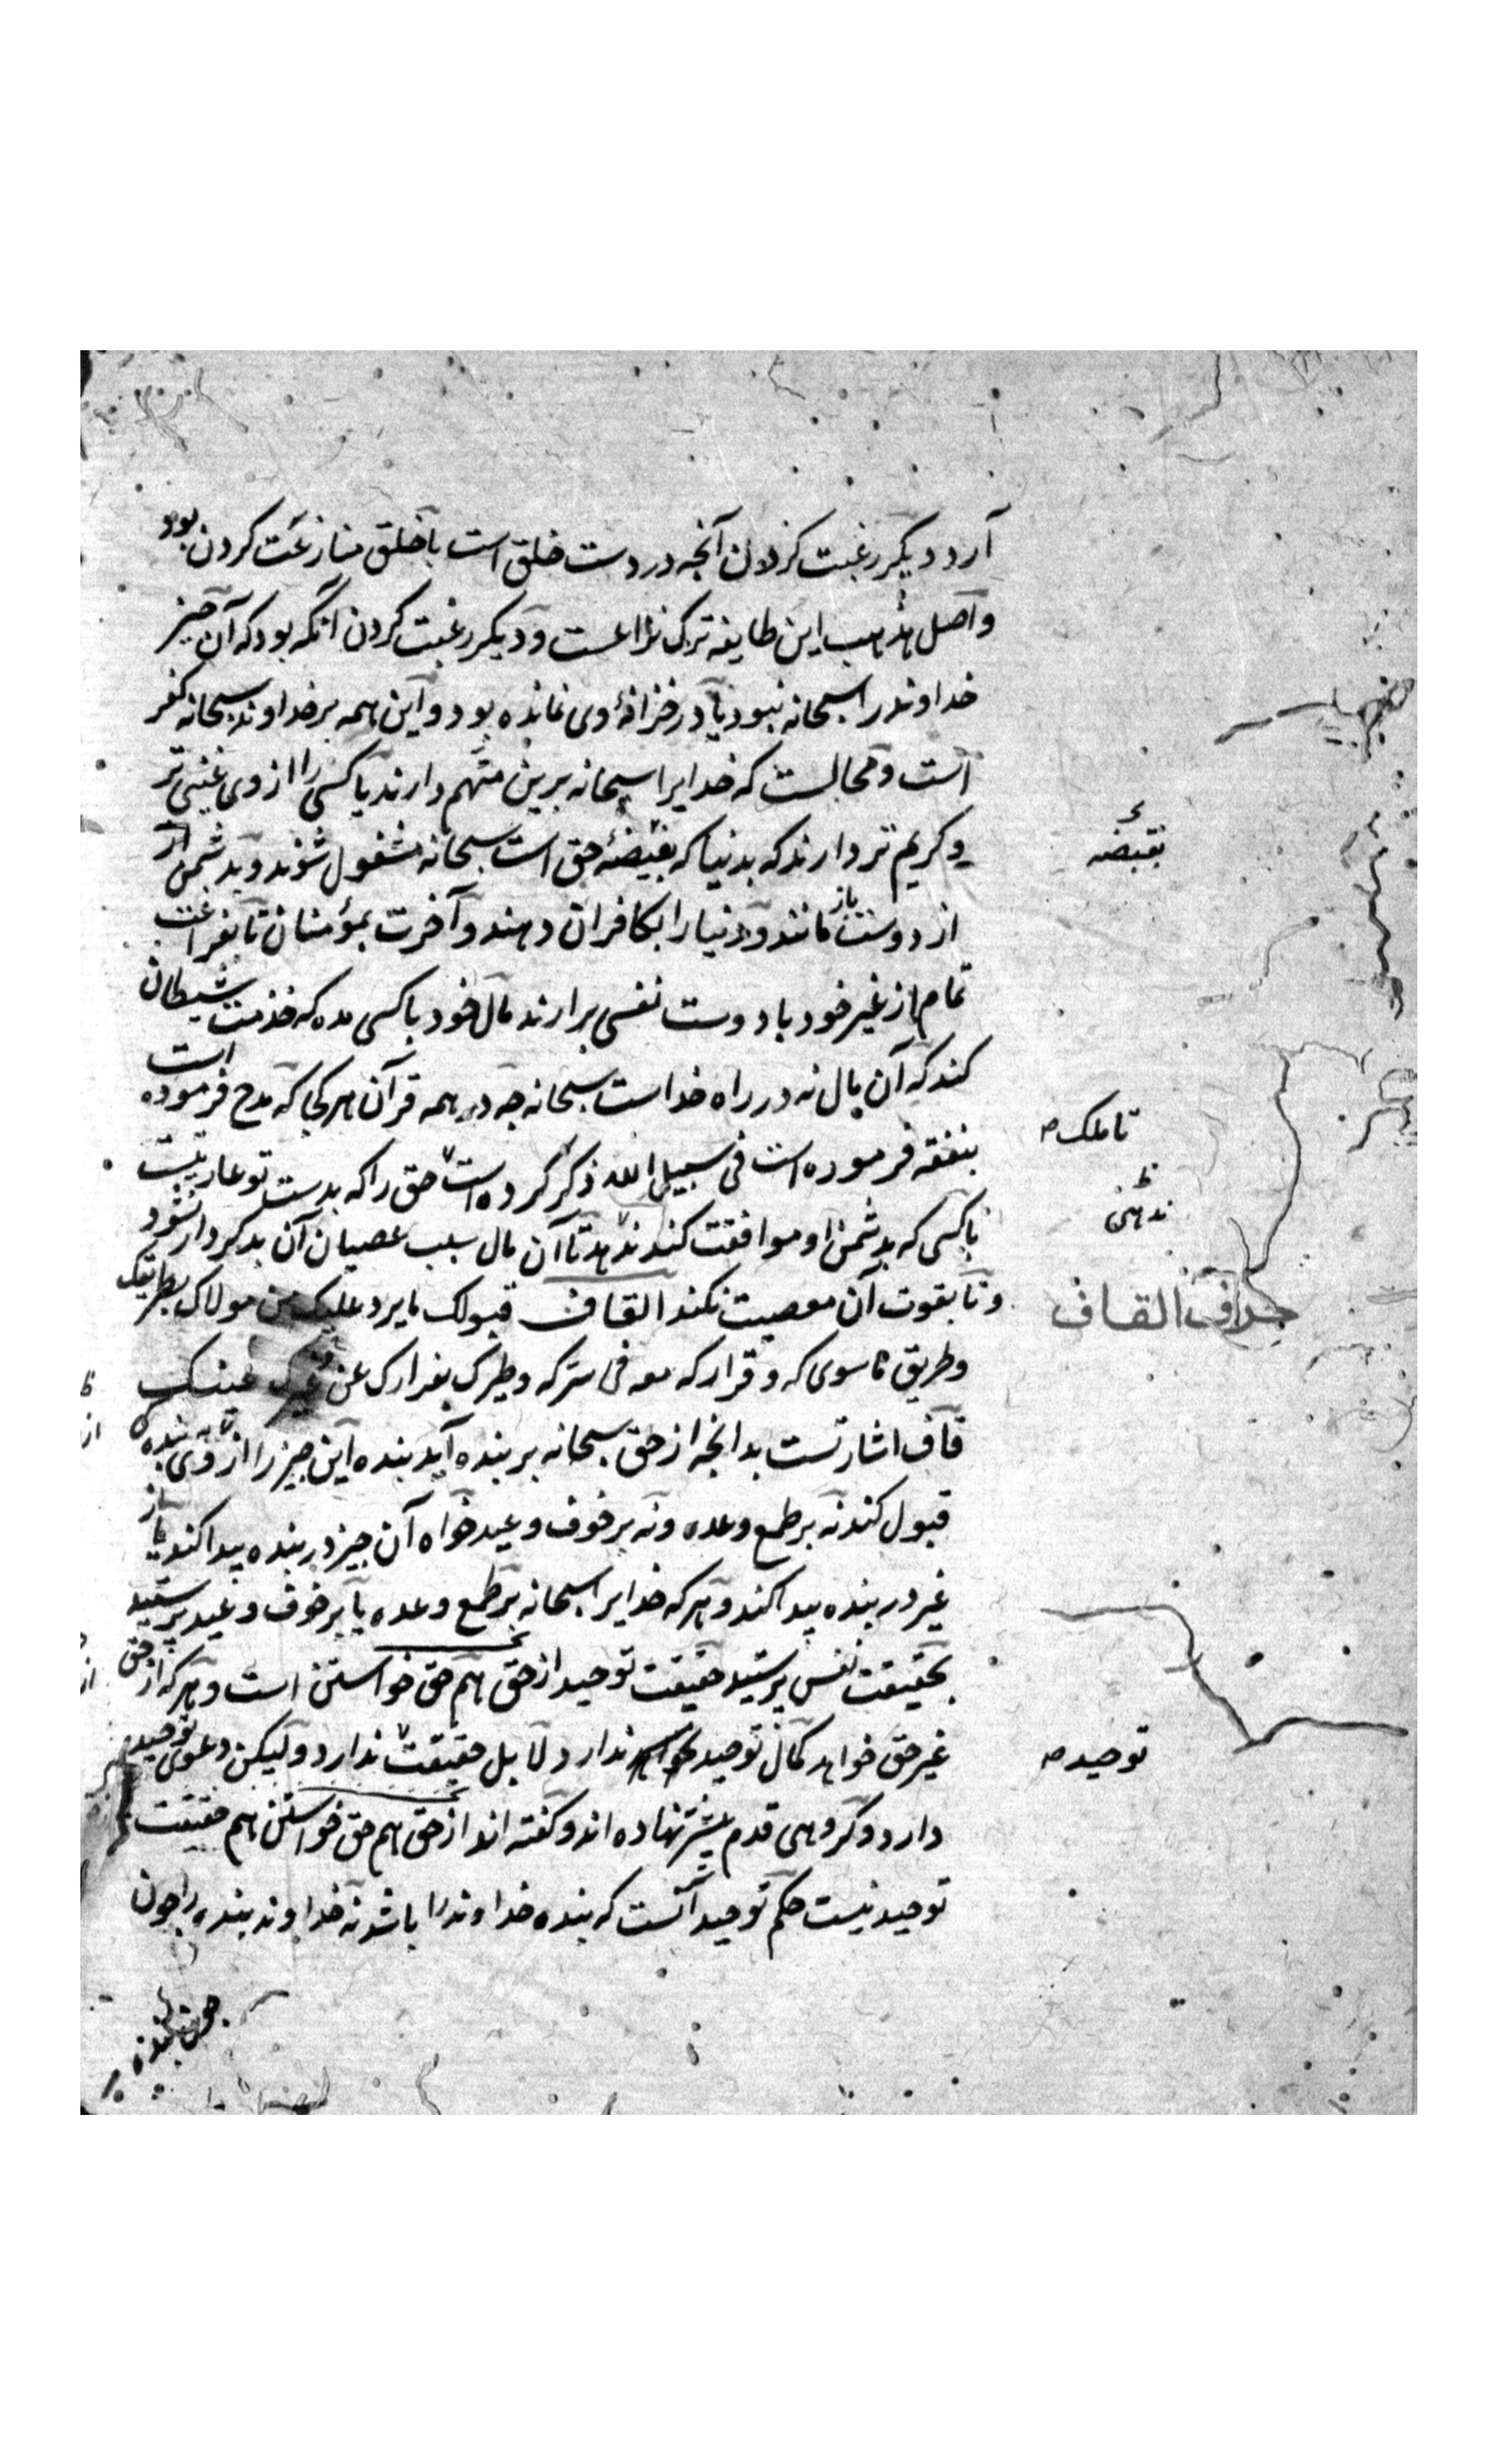 آرد دیکر رغبت کردن آنچه در دست خلق است با خلق منازعت کردن بود
و اصل مذهب این طایفه ترک نزاعست و دیکر رغبت کردن آنکه بود که آن چیز
خداوند را سبحانه نبود یا در خزانهٔ وی نمانده بود و این همه بر خداوند سبحانه کفر
است و محالست که خدایرا سبحانه برین متهم دارند یا کسی را از وی غنی تر
و کریم تر دارند که بدنیا که بغیضهٔ حق است سبحانه مشغول شوند و بدشمن از
از دوست باز مانند و دنیا را بکافران دهند و آخرت بمؤمنان تا بفراغت
تمام از غیر خود با دوست نفسی برارند مال خود با کسی مده که خدمت شیطان
کند که آن مال نه در راه خداست سبحانه چه در همه قرآن هر کجا که مدح فرموده است
بنفقه فرموده است فی سبیل الله ذکر کرده است حق را که بدست تو عاریتست
با کسی که بدشمن او موافقت کند ندهد تا آن مال سبب عصیان آن بدکردار نشود
و تا بقوت آن معصیت نکند القاف قبولک ما یرد علیک من مولاک بطریقک
و طریق ما سوی که و قرارکه معه فی سرکه و طرک بغرارک عن
قاف اشارتست بدانچه از حق سبحانه بر بنده آید بنده این چیز را از روی بندکی
قبول کند نه بر طمع وعده و نه بر خوف وعید خواه آن چیز در بنده پیدا کند یا از
غیر در بنده پیدا کند و هر که خدایرا سبحانه بر طمع وعده یا بر خوف وعید پرستید
بحقیقت نفس پرستید حقیقت توحید از حق هم حق خواستن است و هر که از حق
غیر حق خواهد کمال توحید ندارد لا بل حقیقت ندارد و لیکن دعوی توحید
دارد و کروهی قدم پیشتر نهاده اند و کفته اند از حق هم حق خواستن هم حقیقت
توحید نیست حکم توحید آنست که بنده خداوند را باشد نه خداوند بنده را چون
بقبضه
تا ملک
ندهی
القاف
توحید
چون بنده